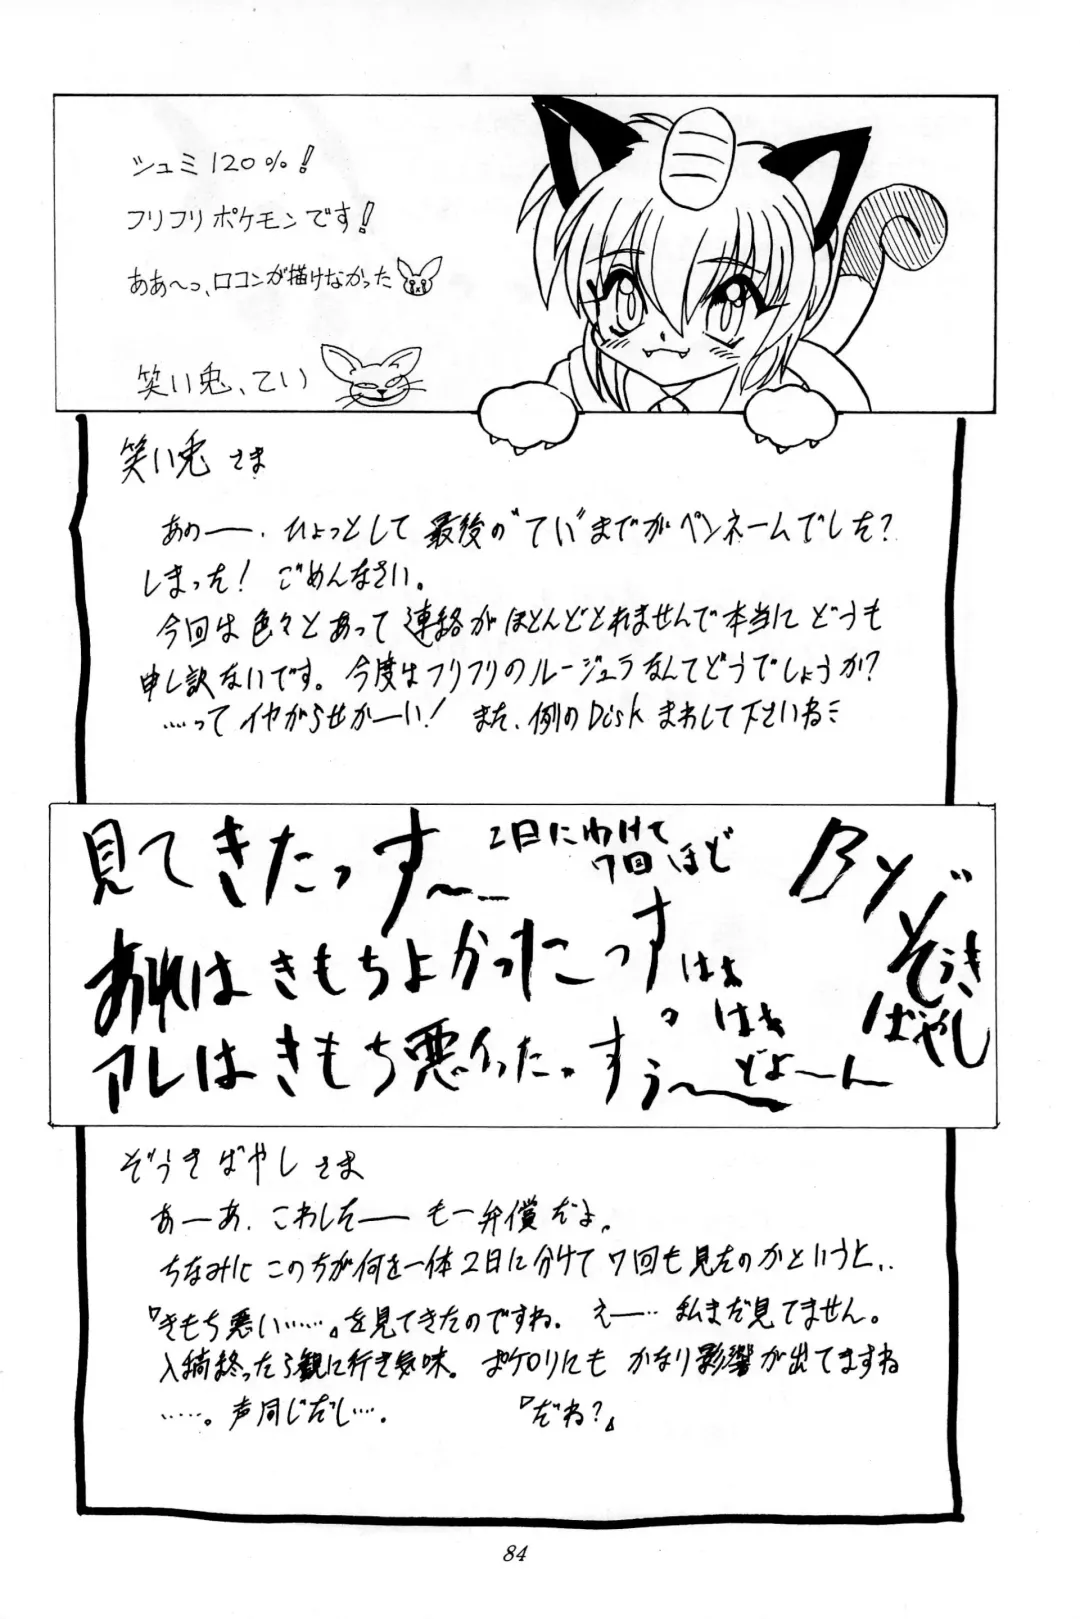 シュミ120%!
フリフリポケモンです!
ああ〜っ、ロコンが描けなかった
笑い兎、てい
笑い兎 さま
あのー、ひょっとして最後の"てい"までがペンネームでした?
しまった! ごめんなさい。
今回は色々とあって連絡がほとんどとれませんで本当にどうも
申し訳ないです。今度はフリフリのルージュラなんてどうでしょうか?
……ってイヤがらせかーい! また、例のDiskまわして下さいね
見てきたっす〜
2日にわけて
7回ほど
By
ぞうき
ばやし
あれはきもちよかったっす
はぁ
はぁ
アレはきもち悪イったっすぅ〜
どよ〜ん
ぞうきばやしさま
あーあ、こわしたー もー弁償だよ。
ちなみにこの方が何を一体2日に分けて7回も見たのかというと、..
『きもち悪い……。』を見てきたのですね。えー… 私まだ見てません。
入稿終ったら観に行き気味。ポケロリにもかなり影響が出てますね
……。声同じだし…. 『だね?』
84